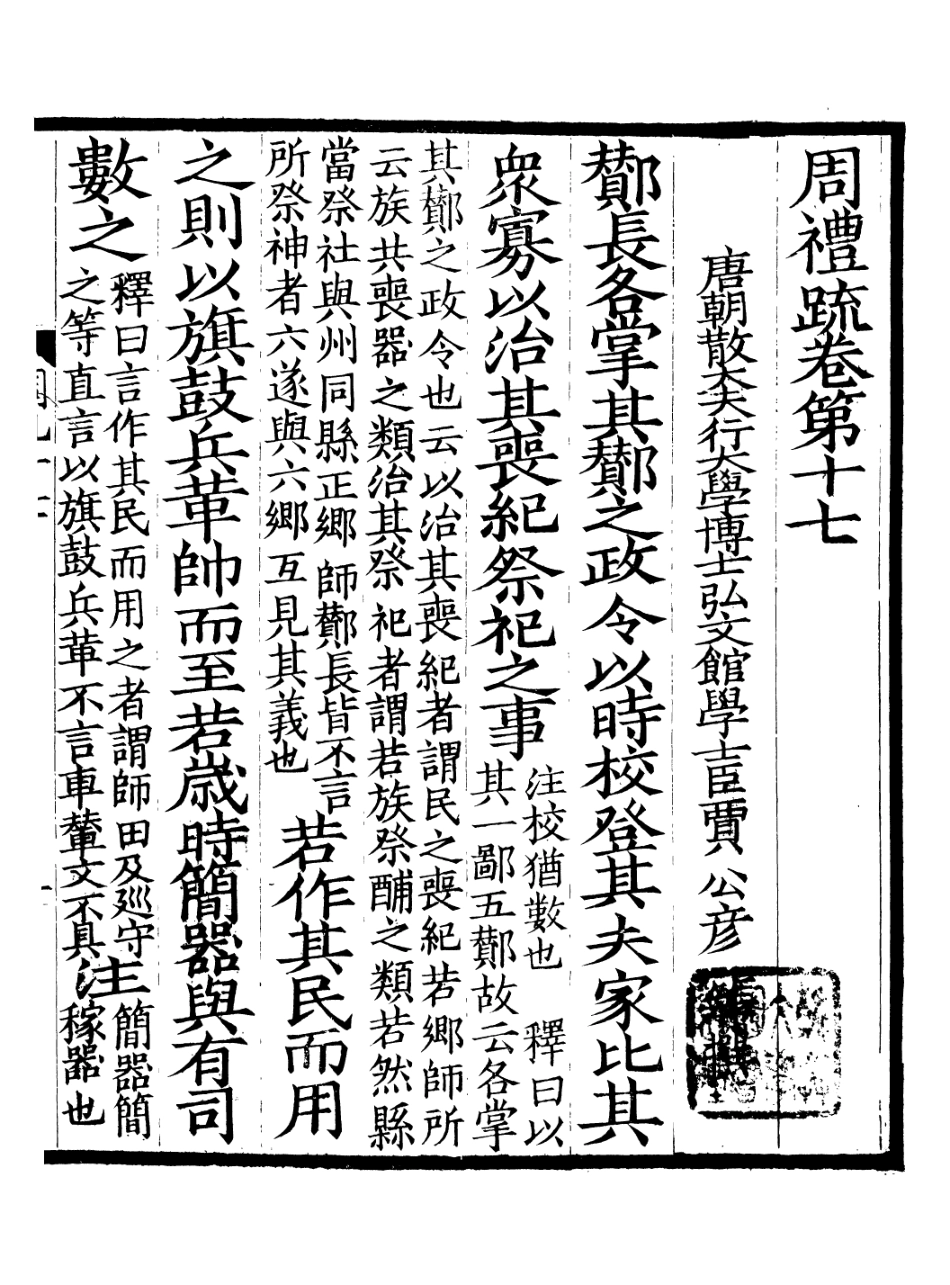 周禮疏卷第十七
唐朝散大夫行大學博士弘文館學士臣賈公彥
酇長各掌其酇之政令以時校登其夫家比其
衆寡以治其喪紀祭祀之事
注校猶數也 釋曰以
其一鄙五酇故云各掌
其酇之政令也云以治其喪紀者謂民之喪紀若鄉師所
云族共喪器之類治其祭祀者謂若族祭酺之類若然縣
當祭社與州同縣正鄉師酇長皆不言
所祭神者六遂與六鄉互見其義也
若作其民而用
之則以旗鼓兵革帥而至若歲時簡器與有司
數之
釋曰言作其民而用之者謂師田及廵守
之等直言以旗鼓兵革不言車輦文不具
注
簡器簡
稼器也